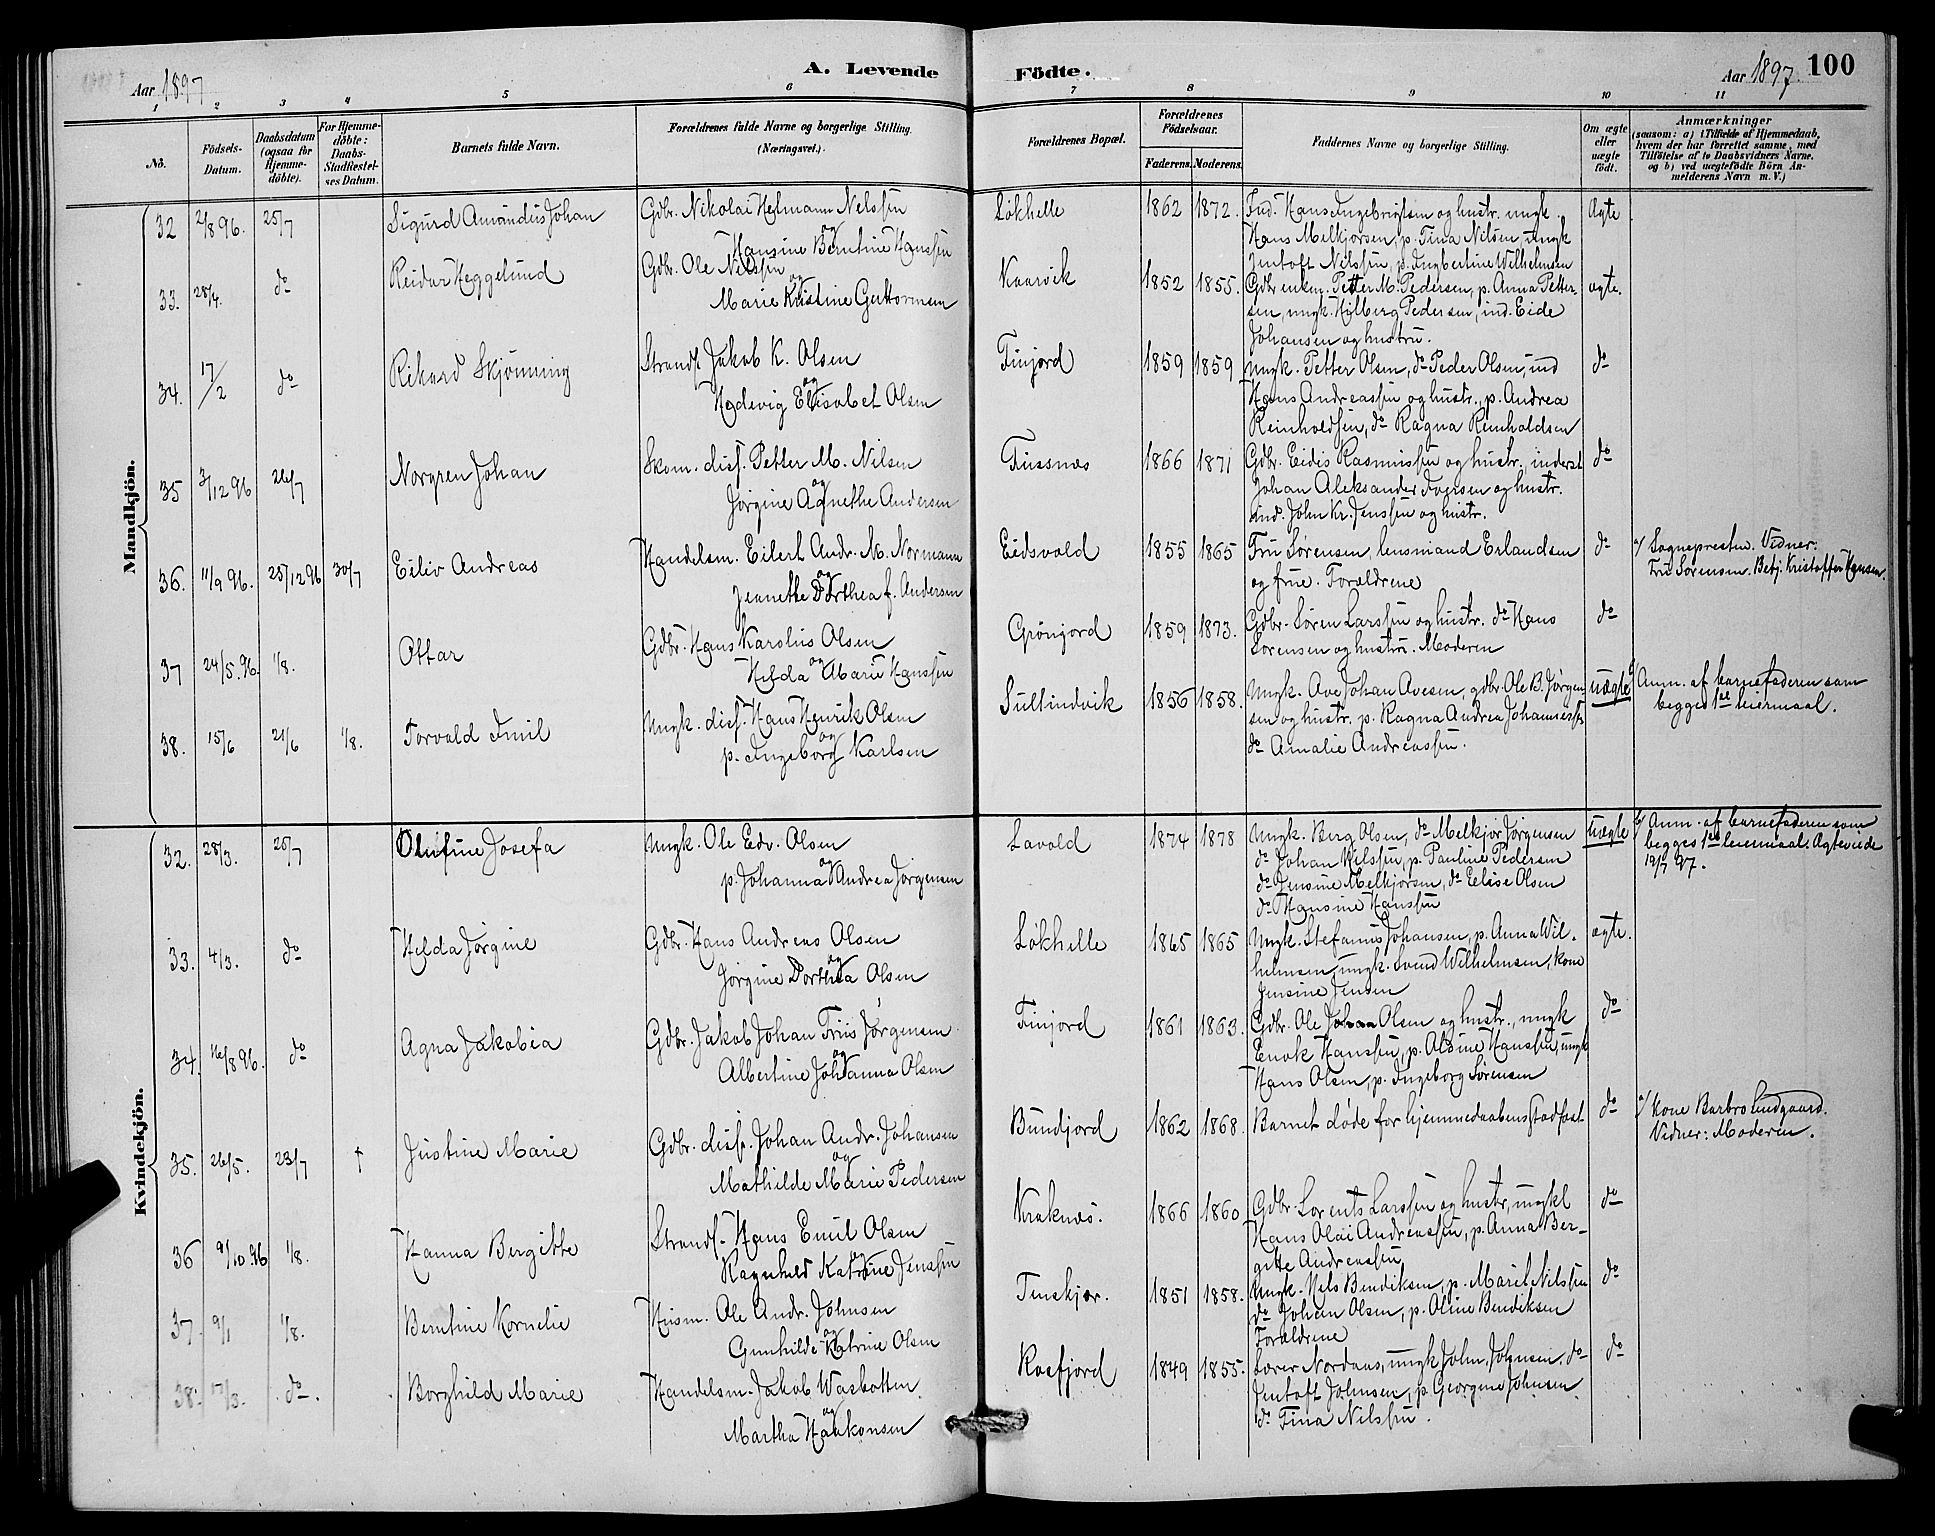 Aar 1897
A. Levende
Födte.
Aar 1897.
100
1 2 3 4 5 6 7 8 9 10 11
No.
Födsels-
Datum.
Daabsdatum
(ogsaa for
Hjemme-
döbte).
For Hjemme-
döbte:
Daabs-
Stadfæstel-
ses Datum.
Barnets fulde Navn.
Forældrenes fulde Navne og borgerlige Stilling.
(Næringsvei.)
Forældrenes Bopæl.
Forældrenes
Födselsaar.
Faderens. Moderens.
Faddernes Navne og borgerlige Stilling.
Om ægte
eller
uægte
födt.
Anmærkninger
(saasom: a) i Tilfælde af Hjemmedaab,
hvem der har forrettet samme, med
Tilföielse af to Daabsvidners Navne.
og b) ved uægtefödte Börn An-
melderens Navn m. V.)
Mandkjön.
32 2/8 96. 25/7 Sigurd Amandus Johan
Gdbr. Nikolai Helmann Nelssen
og
Hansine Berntine Hanssen
Løkhelle 1862 1872.
Ind. Hans Ingebrigtsen og hustr. ungk.
Hans Melkjorsen, p. Tina Nilsen, ungk
Jentoft Nilssen, p. Ingbertine Wilhelmsen
Ægte
33. 28/4. do Reidar Heggelund
Gdbr. Ole Nilssen
og
Marie Kristine Guttormsen
Kaarvik 1852 1855.
Gdbr enkem. Petter M. Pedersen, p. Anna Petter-
sen, ungk. Hilberg Pedersen, ind. Eide
Johansen og hustru.
ægte.
34. 17/2 do Rikard Skjønning
Strands. Jakob K. Olsen
og
Hedevig Elisabet Olsen
Finjord 1859 1859
Ungk. Petter Olsen, do Peder Olsen, ind
Hans Andreassen og hustr., p. Andrea
Reinholdsen, do Ragna Reinholdsen
do
35 3/12 96 26/7 Norgren Johan
Skom. diss. Petter M. Nilsen
og
Jørgine Agnethe Andersen
Finsnæs 1866 1871
Gdbr. Eidis Rasmussen og hustr., inderst
Johan Aleksander Iversen og hustr.
ind. John Kr. Jenssen og hustr.
do
36. 11/9 96. 25/12 96 30/7 Eiliv Andreas
Handelsm. Eilert Andr. M. Normann
og
Jennethe Dorthea f. Andersen
Eidsvold 1855 1865
Fru Sørensen, lensmand Erlandsen
og frue. Forældrene
do
a/ Sogneprestn. Vidner:
Fru Sørensen. Betj. Kristoffer Hansen.
37 24/5. 96. 1/8. Ottar
Gdbr. Hans Karolius Olsen
og
Hilda Marie Hanssen
Grönjord 1859 1873.
Gdbr. Søren Larssen og hustr. do Hans
Sørensen og hustru. Moderen
do
38. 15/6 21/6 1/8. Torvald Emil
Ungk. diss. Hans Henrik Olsen
og
p. Ingeborg Karlsen
Sultindvik 1856 1858.
Ungk. Ave Johan Avesen, gdbr. Ole B. Jørgen
sen og hustr. p. Ragna Andrea Johannessen
do Amalie Andreassen.
uægte
b/ Anm. af barnefaderen som
begges 1ste leiermaal.
Kvindekjön.
32. 28/3. 25/7 Olufine Josefa
Ungk. Ole Edv. Olsen
og
p. Johanna Andrea Jörgensen
Lavold 1874 1878
Ungk. Berg Olsen, do Melkjor Jørgensen
do Johan Nilssen, p. Pauline Pedersen
do Jensine Melkjorsen, do Elise Olsen
do Hansine Hanssen
uægte
b/ Anm. af barnefaderen som
begges 1ste leiermaal. Ægteviede
19/7 97.
33. 4/3. do Helda Jørgine
Gdbr. Hans Andreas Olsen
og
Jørgine Dorthea Olsen
Løkhelle 1865 1865
Ungk. Stefanus Johansen, p. Anna Wil-
helmsen, ungk. Svend Wilhelmsen, kone
Jensine Jensen
ægte.
34. 16/8 96. do Agna Jakobia
Gdbr. Jakob Johan Friis Jørgensen
og
Albertine Johanna Olsen
Finjord 1861 1863.
Gdbr. Ole Johan Olsen og hustr., ungk
Enok Hanssen, p. Aldine Hanssen, ungk
Hans Olsen, p. Ingeborg Sørensen
do
35. 26/5. 23/7 † Justine Marie
Gdbr. diss. Johan Andr. Johansen
og
Mathilde Marie Pedersen
Bundjord 1862 1868.
Barnet døde før hjemmedaabens stadfæst
do
a/ Kone Barbro Lindgaard.
Vidner: Moderen.
36 9/10 96 1/8. Hanna Bergitte
Strands. Hans Emil Olsen
og
Ragnhild Katrine Jenssen
Kraknæs. 1866 1860
Gdbr. Lorents Larssen og hustr, ungkl
Hans Olai Andreassen, p. Anna Ber-
gitte Andreassen
do
37. 9/1 1/8. Berntine Kornelie
Husm. Ole Andr. Johnsen
og
Gunhilde Katrine Olsen
Finskjær. 1851 1858.
Ungk. Nels Bendiksen, p. Marit Nilssen
do Johan Olsen, p. Oline Bendiksen
Forældrene
do
38. 17/3. do Borghild Marie
Handelsm. Jakob Wasbotten
og
Martha Haakonsen
Rosfjord 1849 1855.
Lærer Nordaas, ungk John Johnsen. do
Jentoft Johnsen, p. Georgine Johnsen
do Tina Nilssen.
do